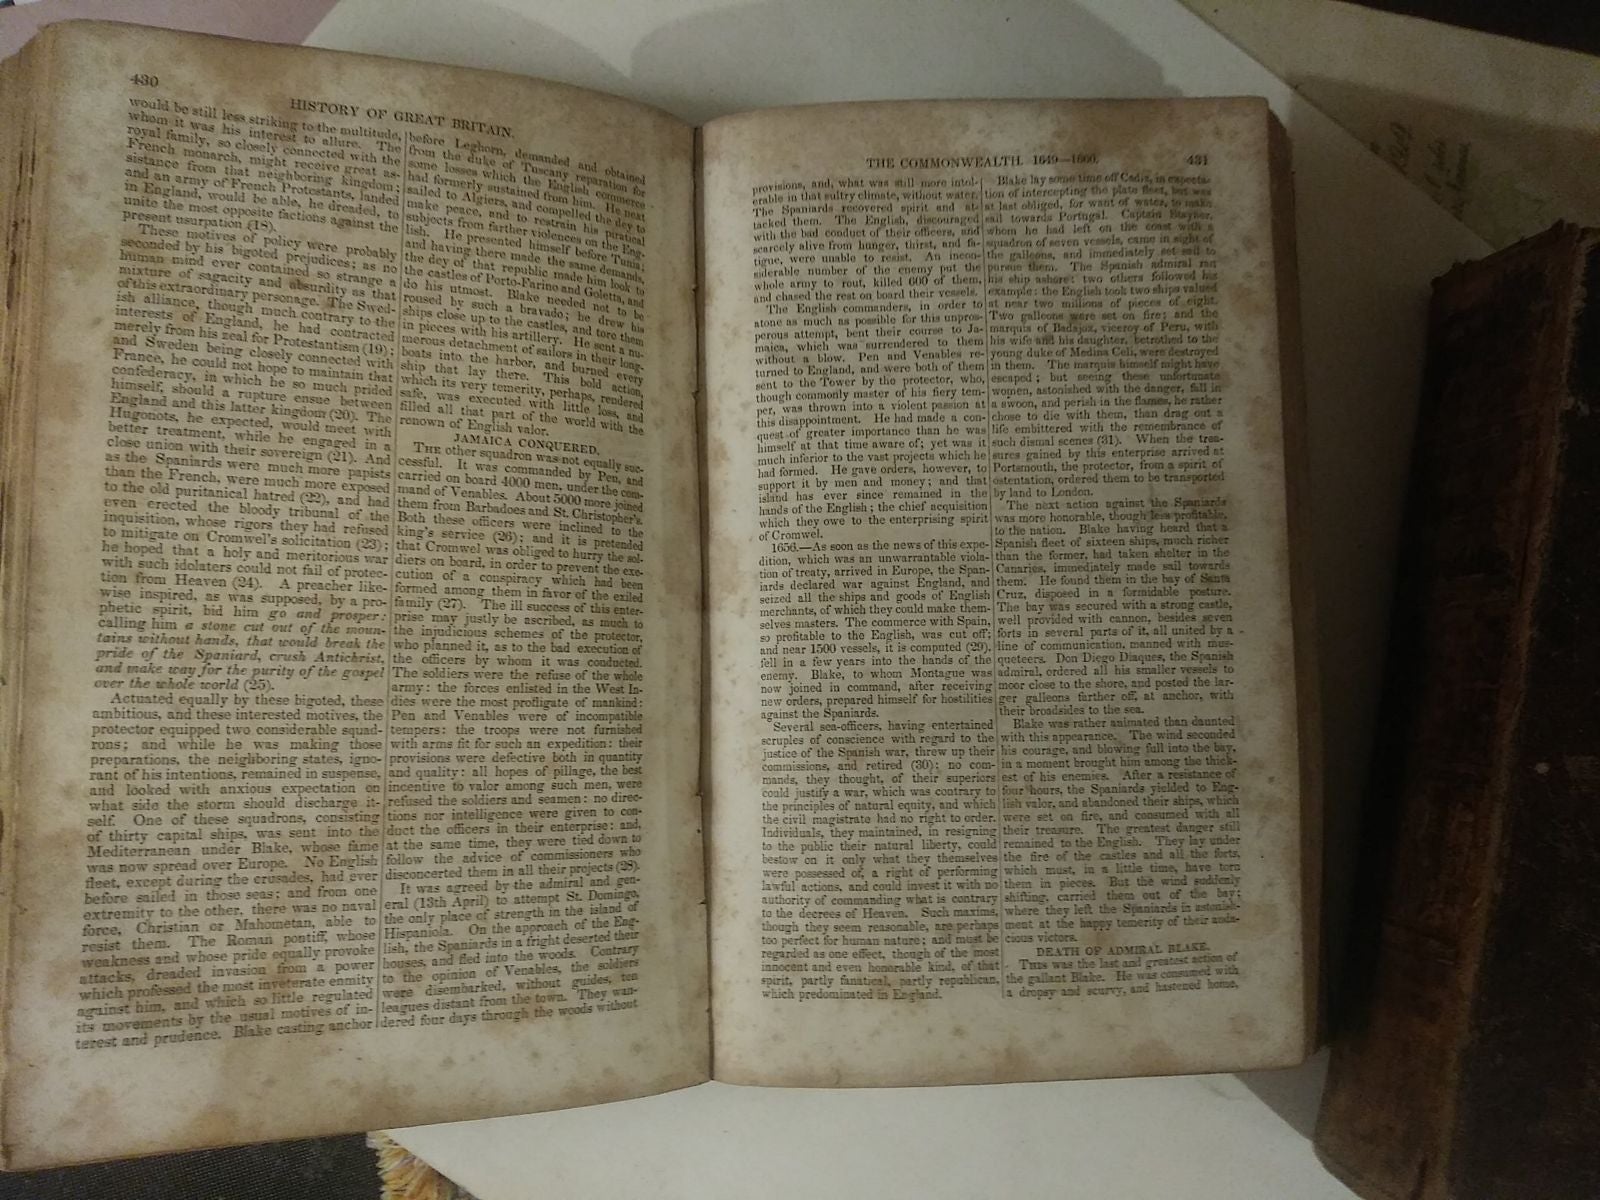 430
HISTORY OF GREAT BRITAIN.
would be still less striking to the multitude,
whom it was his interest to allure. The
royal family, so closely connected with the
French monarch, might receive great as-
sistance from that neighboring kingdom;
and an army of French Protestants, landed
in England, would be able, he dreaded, to
unite the most opposite factions against the
present usurpation (18).
These motives of policy were probably
seconded by his bigoted prejudices; as no
human mind ever contained so strange a
mixture of sagacity and absurdity as that
of this extraordinary personage. The Swed-
ish alliance, though much contrary to the
interests of England, he had contracted
merely from his zeal for Protestantism (19);
and Sweden being closely connected with
France, he could not hope to maintain that
confederacy, in which he so much prided
himself, should a rupture ensue between
England and this latter kingdom (20). The
Hugonots, he expected, would meet with
better treatment, while he engaged in a
close union with their sovereign (21). And
as the Spaniards were much more papists
than the French, were much more exposed
to the old puritanical hatred (22), and had
even erected the bloody tribunal of the
inquisition, whose rigors they had refused
to mitigate on Cromwel's solicitation (23);
he hoped that a holy and meritorious war
with such idolaters could not fail of protec-
tion from Heaven (24). A preacher like-
wise inspired, as was supposed, by a pro-
phetic spirit, bid him go and prosper:
calling him a stone cut out of the moun-
tains without hands, that would break the
pride of the Spaniard, crush Antichrist,
and make way for the purity of the gospel
over the whole world (25).
Actuated equally by these bigoted, these
ambitious, and these interested motives, the
protector equipped two considerable squad-
rons; and while he was making those
preparations, the neighboring states, igno-
rant of his intentions, remained in suspense,
and looked with anxious expectation on
what side the storm should discharge it-
self. One of these squadrons, consisting
of thirty capital ships, was sent into the
Mediterranean under Blake, whose fame
was now spread over Europe. No English
fleet, except during the crusades, had ever
before sailed in those seas; and from one
extremity to the other, there was no naval
force, Christian or Mahometan, able to
resist them. The Roman pontiff, whose
weakness and whose pride equally provoke
attacks, dreaded invasion from a power
which professed the most inveterate enmity
against him, and which so little regulated
its movements by the usual motives of in-
terest and prudence. Blake casting anchor
before Leghorn, demanded and obtained
from the duke of Tuscany reparation for
some losses which the English commerce
had formerly sustained from him. He next
sailed to Algiers, and compelled the dey to
make peace, and to restrain his piratical
subjects from farther violences on the Eng-
lish. He presented himself before Tunis;
and having there made the same demands,
the dey of that republic made him look to
the castles of Porto-Farino and Goletta, and
do his utmost. Blake needed not to be
roused by such a bravado; he drew his
ships close up to the castles, and tore them
in pieces with his artillery. He sent a nu-
merous detachment of sailors in their long-
boats into the harbor, and burned every
ship that lay there. This bold action,
which its very temerity, perhaps, rendered
safe, was executed with little loss, and
filled all that part of the world with the
renown of English valor.
JAMAICA CONQUERED.
THE other squadron was not equally suc-
cessful. It was commanded by Pen, and
carried on board 4000 men, under the com-
mand of Venables. About 5000 more joined
them from Barbadoes and St. Christopher's.
Both these officers were inclined to the
king's service (26); and it is pretended
that Cromwel was obliged to hurry the sol-
diers on board, in order to prevent the exe-
cution of a conspiracy which had been
formed among them in favor of the exiled
family (27). The ill success of this enter-
prise may justly be ascribed, as much to
the injudicious schemes of the protector,
who planned it, as to the bad execution of
the officers by whom it was conducted.
The soldiers were the refuse of the whole
army: the forces enlisted in the West In-
dies were the most profligate of mankind:
Pen and Venables were of incompatible
tempers: the troops were not furnished
with arms fit for such an expedition: their
provisions were defective both in quantity
and quality: all hopes of pillage, the best
incentive to valor among such men, were
refused the soldiers and seamen: no direc-
tions nor intelligence were given to con-
duct the officers in their enterprise: and,
at the same time, they were tied down to
follow the advice of commissioners who
disconcerted them in all their projects (28).
It was agreed by the admiral and gen-
eral (13th April) to attempt St. Domingo,
the only place of strength in the island of
Hispaniola. On the approach of the Eng-
lish, the Spaniards in a fright deserted their
houses, and fled into the woods. Contrary
to the opinion of Venables, the soldiers
were disembarked, without guides, ten
leagues distant from the town. They wan-
dered four days through the woods without
THE COMMONWEALTH. 1649—1660. 431
provisions, and, what was still more intol-
erable in that sultry climate, without water.
The Spaniards recovered spirit and at-
tacked them. The English, discouraged
with the bad conduct of their officers, and
scarcely alive from hunger, thirst, and fa-
tigue, were unable to resist. An incon-
siderable number of the enemy put the
whole army to rout, killed 600 of them,
and chased the rest on board their vessels.
The English commanders, in order to
atone as much as possible for this unpros-
perous attempt, bent their course to Ja-
maica, which was surrendered to them
without a blow. Pen and Venables re-
turned to England, and were both of them
sent to the Tower by the protector, who,
though commonly master of his fiery tem-
per, was thrown into a violent passion at
this disappointment. He had made a con-
quest of greater importance than he was
himself at that time aware of; yet was it
much inferior to the vast projects which he
had formed. He gave orders, however, to
support it by men and money; and that
island has ever since remained in the
hands of the English; the chief acquisition
which they owe to the enterprising spirit
of Cromwel.
1656.—As soon as the news of this expe-
dition, which was an unwarrantable viola-
tion of treaty, arrived in Europe, the Span-
iards declared war against England, and
seized all the ships and goods of English
merchants, of which they could make them-
selves masters. The commerce with Spain,
so profitable to the English, was cut off;
and near 1500 vessels, it is computed (29),
fell in a few years into the hands of the
enemy. Blake, to whom Montague was
now joined in command, after receiving
new orders, prepared himself for hostilities
against the Spaniards.
Several sea-officers, having entertained
scruples of conscience with regard to the
justice of the Spanish war, threw up their
commissions, and retired (30); no com-
mands, they thought, of their superiors
could justify a war, which was contrary to
the principles of natural equity, and which
the civil magistrate had no right to order.
Individuals, they maintained, in resigning
to the public their natural liberty, could
bestow on it only what they themselves
were possessed of, a right of performing
lawful actions, and could invest it with no
authority of commanding what is contrary
to the decrees of Heaven. Such maxims,
though they seem reasonable, are perhaps
too perfect for human nature; and must be
regarded as one effect, though of the most
innocent and even honorable kind, of that
spirit, partly fanatical, partly republican,
which predominated in England.
Blake lay some time off Cadiz, in expecta-
tion of intercepting the plate fleet, but was
at last obliged, for want of water, to make
sail towards Portugal. Captain Stayner,
whom he had left on the coast with a
squadron of seven vessels, came in sight of
the galleons, and immediately set sail to
pursue them. The Spanish admiral ran
his ship ashore: two others followed his
example: the English took two ships valued
at near two millions of pieces of eight.
Two galleons were set on fire; and the
marquis of Badajoz, viceroy of Peru, with
his wife and his daughter, betrothed to the
young duke of Medina Celi, were destroyed
in them. The marquis himself might have
escaped; but seeing these unfortunate
women, astonished with the danger, fall in
a swoon, and perish in the flames, he rather
chose to die with them, than drag out a
life embittered with the remembrance of
such dismal scenes (31). When the trea-
sures gained by this enterprise arrived at
Portsmouth, the protector, from a spirit of
ostentation, ordered them to be transported
by land to London.
The next action against the Spaniards
was more honorable, though less profitable,
to the nation. Blake having heard that a
Spanish fleet of sixteen ships, much richer
than the former, had taken shelter in the
Canaries, immediately made sail towards
them. He found them in the bay of Santa
Cruz, disposed in a formidable posture.
The bay was secured with a strong castle,
well provided with cannon, besides seven
forts in several parts of it, all united by a
line of communication, manned with mus-
queteers. Don Diego Diaques, the Spanish
admiral, ordered all his smaller vessels to
moor close to the shore, and posted the lar-
ger galleons farther off, at anchor, with
their broadsides to the sea.
Blake was rather animated than daunted
with this appearance. The wind seconded
his courage, and blowing full into the bay,
in a moment brought him among the thick-
est of his enemies. After a resistance of
four hours, the Spaniards yielded to Eng-
lish valor, and abandoned their ships, which
were set on fire, and consumed with all
their treasure. The greatest danger still
remained to the English. They lay under
the fire of the castles and all the forts,
which must, in a little time, have torn
them in pieces. But the wind suddenly
shifting, carried them out of the bay;
where they left the Spaniards in astonish-
ment at the happy temerity of their auda-
cious victors.
DEATH OF ADMIRAL BLAKE.
THIS was the last and greatest action of
the gallant Blake. He was consumed with
a dropsy and scurvy, and hastened home,